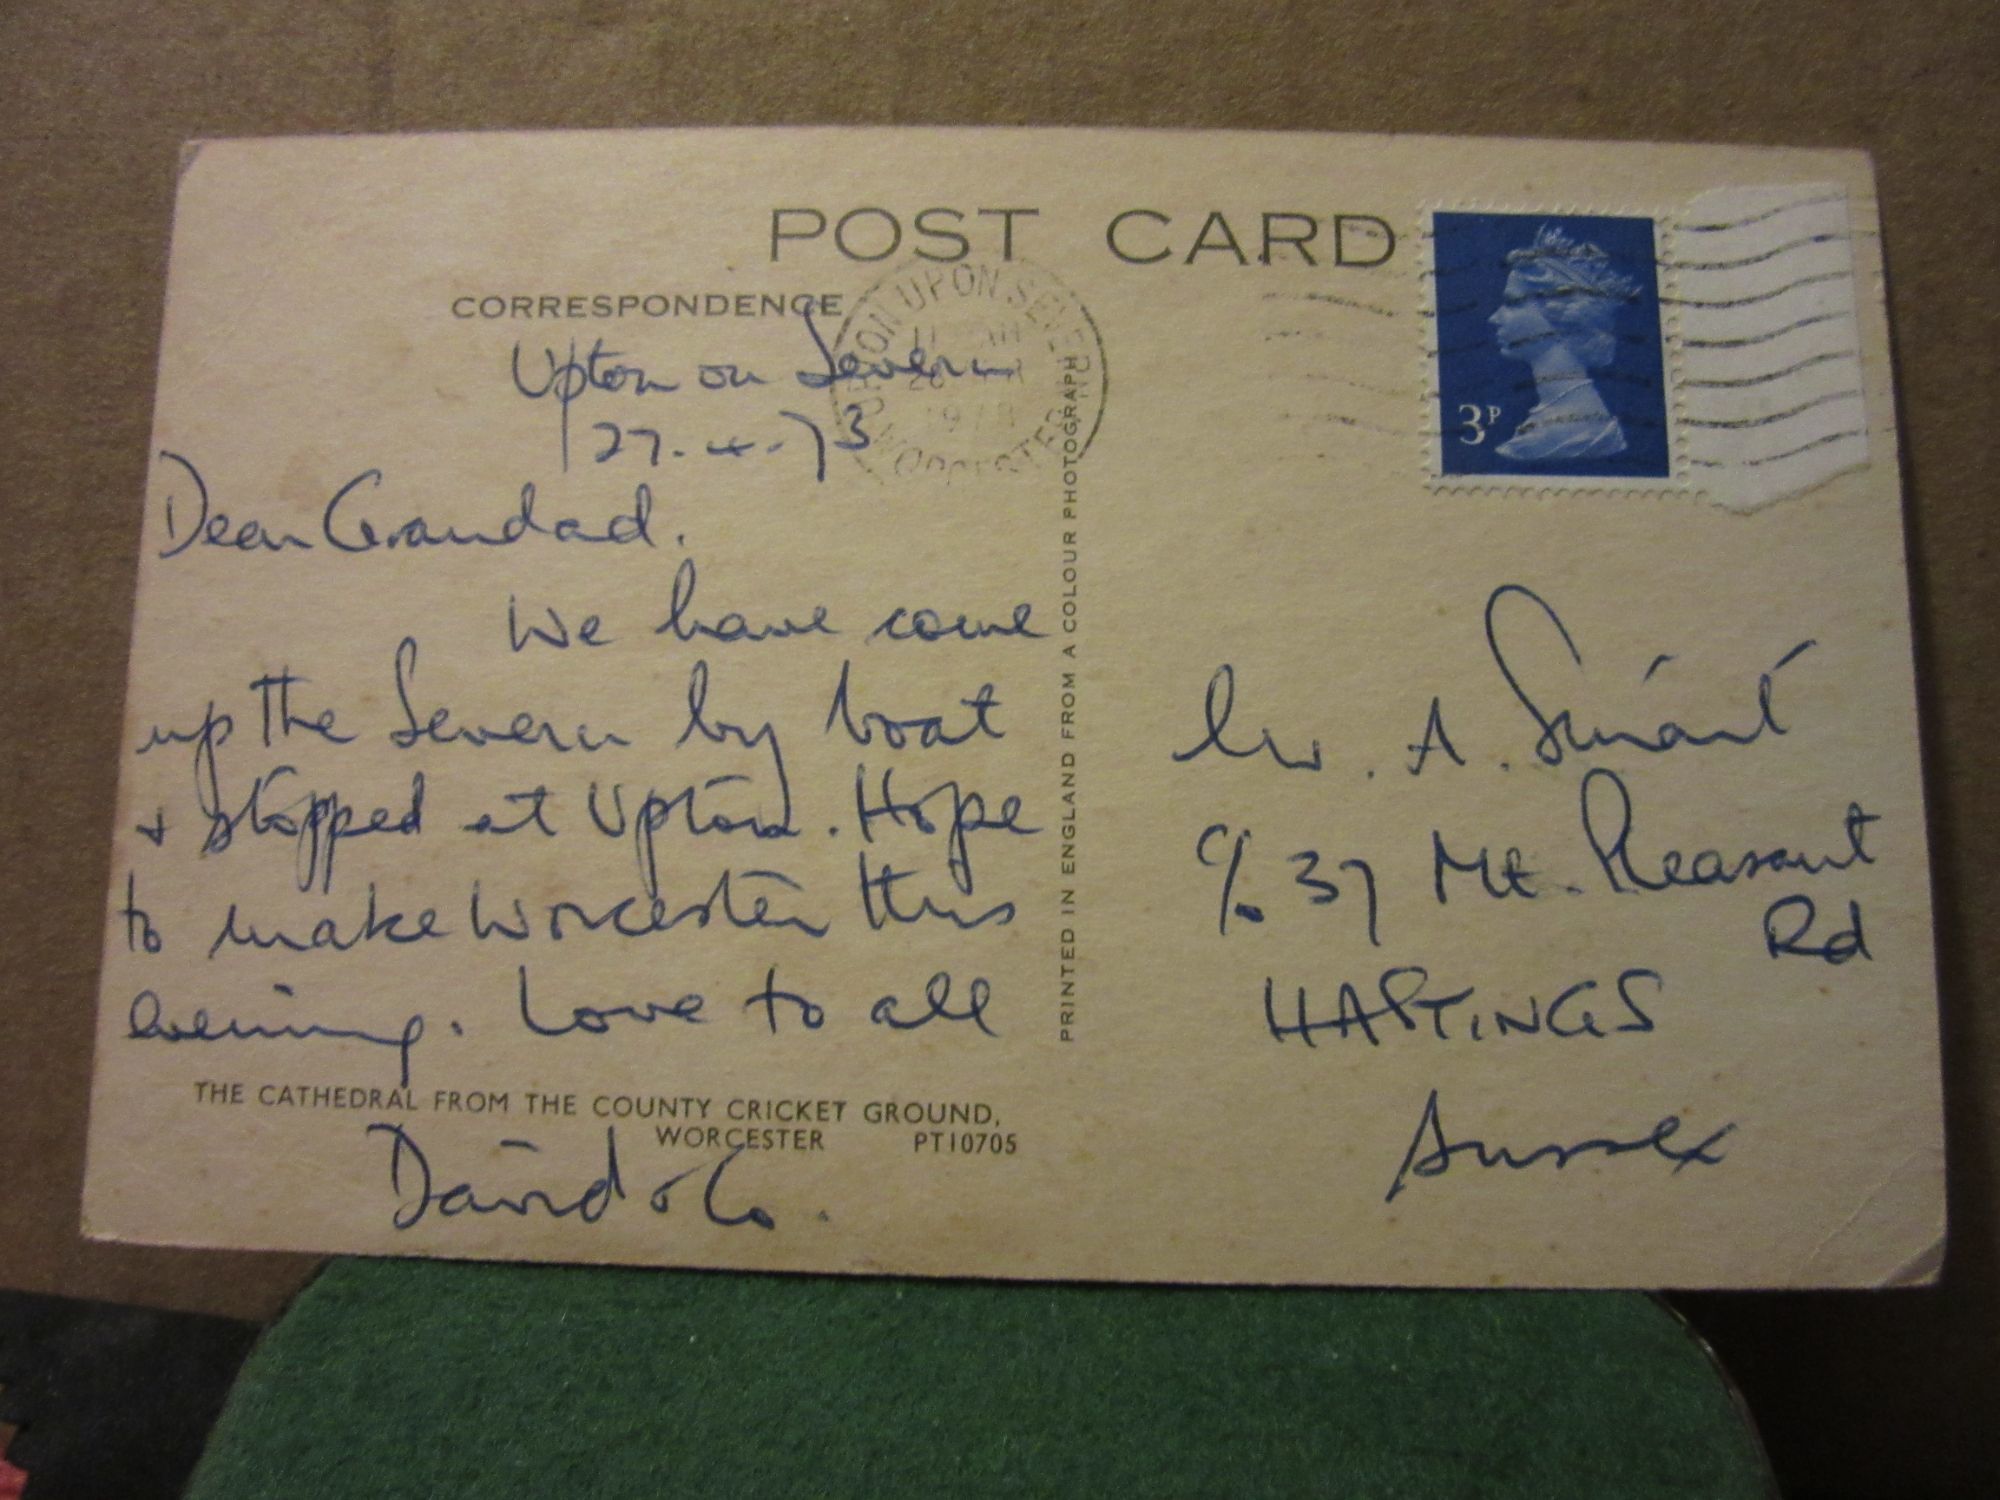 POST CARD
CORRESPONDENCE
Upton on Severn
27.4.73
Dear Grandad.
We have come
up the Severn by boat
+ stopped at Upton. Hope
to make Worcester this
evening. Love to all
THE CATHEDRAL FROM THE COUNTY CRICKET GROUND,
WORCESTER PT10705
David & Co.
PRINTED IN ENGLAND FROM A COLOUR PHOTOGRAPH
UPTON UPON SEVERN
28
WORCESTER
3P
Mr. A.
c/o 37 Mt. Pleasant
Rd
HASTINGS
Sussex